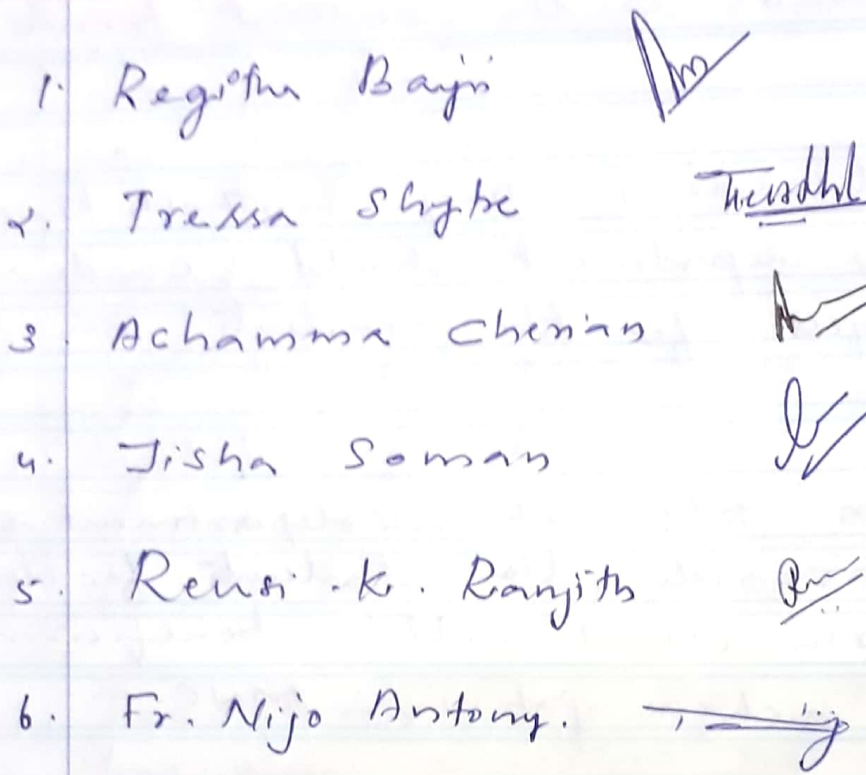 1. Regitha Baiju
2. Tressa Shybe
3. Achamma Cherian
4. Jisha Soman
5. Renu .K. Ranjith
6. Fr. Nijo Antony.